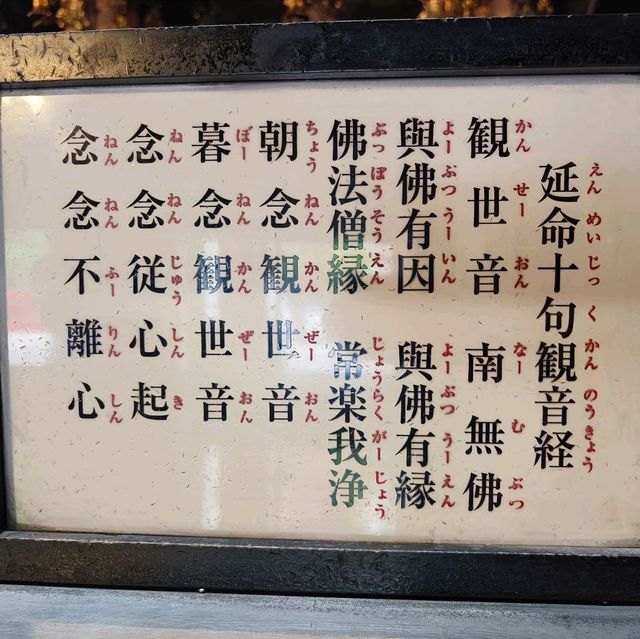 延命十句観音経
えん めい じっ く かん のう きょう
観世音 南無佛
かん ぜー おん なー む ぶつ
與佛有因 與佛有縁
よー ぶつ うー いん よー ぶつ うー えん
佛法僧縁 常楽我浄
ぶっ ぽう そう えん じょう らく がー じょう
朝念観世音
ちょう ねん かん ぜー おん
暮念観世音
ぼー ねん かん ぜー おん
念念従心起
ねん ねん じゅう しん き
念念不離心
ねん ねん ふー りん しん